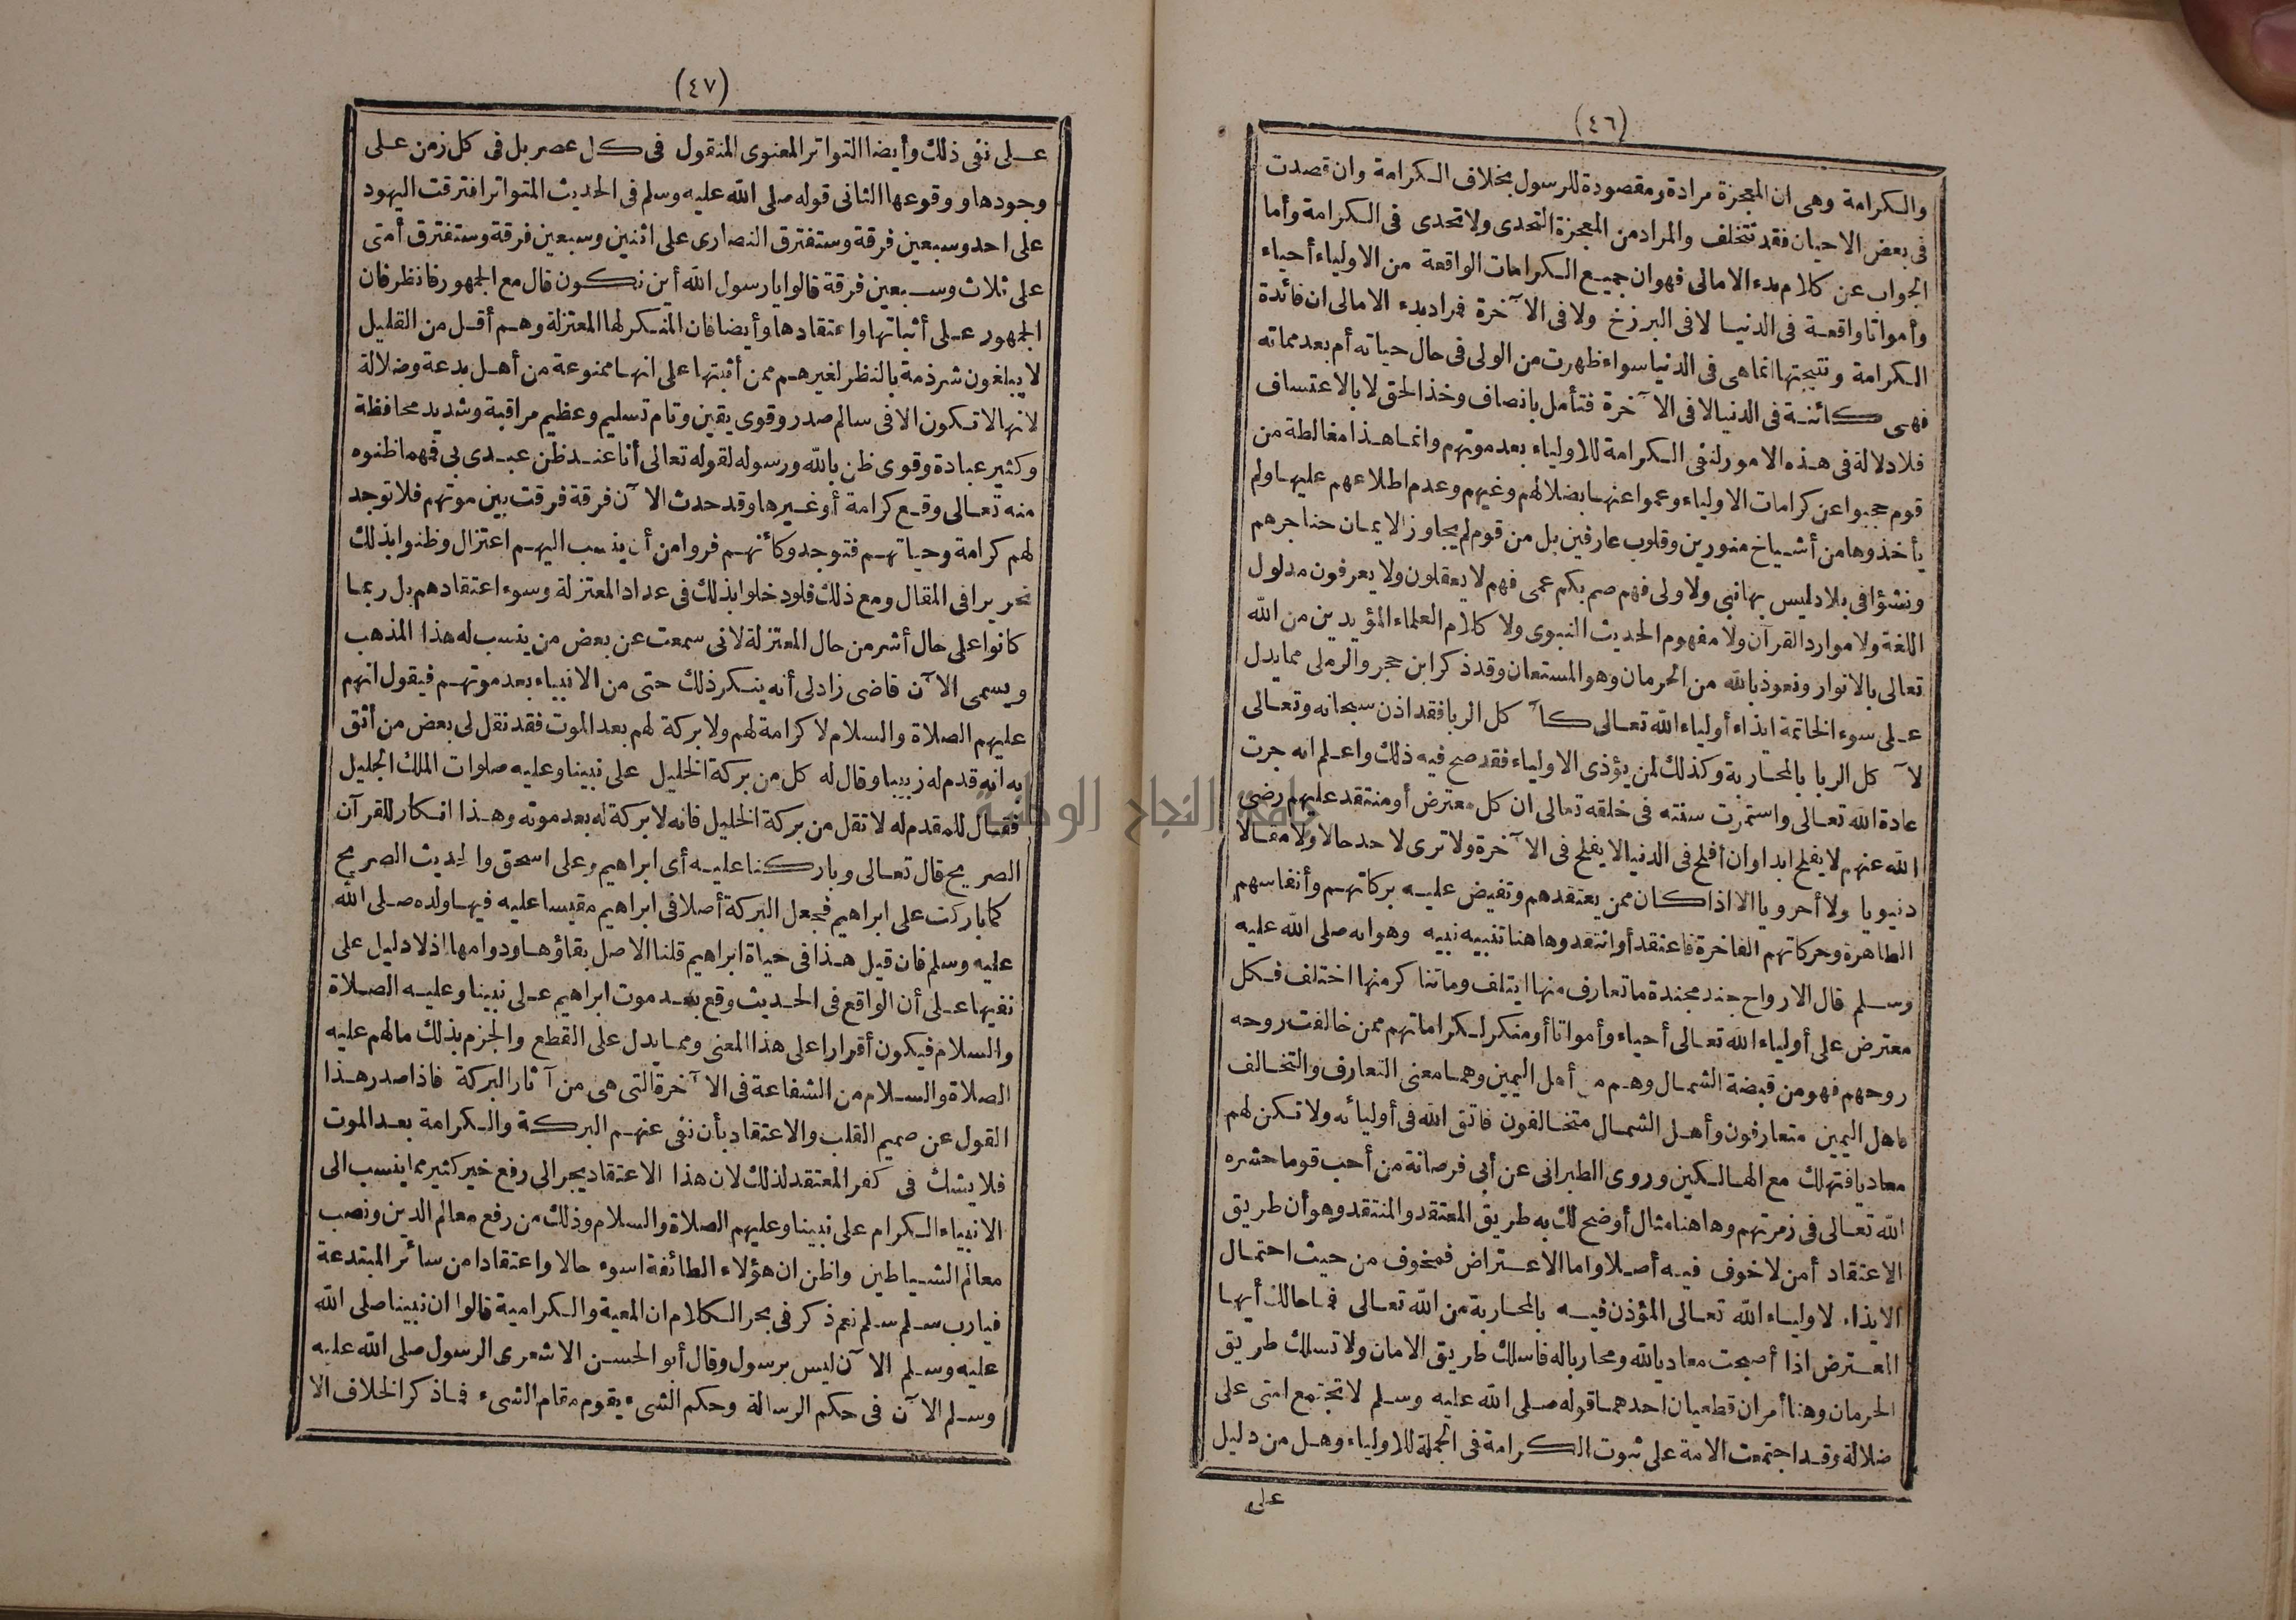 (٤٦)
والكرامة وهى ان المعجزة مرادة ومقصودة للرسول بخلاف الكرامة وان قصدت
فى بعض الاحيان فقد تتخلف والمراد من المعجزة التحدى ولا تحدى فى الكرامة وأما
الجواب عن كلام بدء الامالى فهو ان جميع الكرامات الواقعة من الاولياء أحياء
وأمواتا واقعة فى الدنيا لا فى البرزخ ولا فى الآخرة فراد بدء الامالى ان فائدة
الكرامة ونتيجتها انما هى فى الدنيا سواء ظهرت من الولى فى حال حياته أم بعد مماته
فهى كائنة فى الدنيا لا فى الآخرة فتأمل بانصاف وخذ الحق لا بالاعتساف
فلا دلالة فى هذه الامور لنفى الكرامة للاولياء بعد موتهم وانما هذا مغالطة من
قوم حجبوا عن كرامات الاولياء وعموا عنها بضلالهم وغيهم وعدم اطلاعهم عليها ولم
يأخذوها من أشياخ منورين وقلوب عارفين بل من قوم لم يجاوز الايمان حناجرهم
ونشؤا فى بلاد ليس بها نبى ولا ولى فهم صم بكم عمى فهم لا يعقلون ولا يعرفون مدلول
اللغة ولا موارد القرآن ولا مفهوم الحديث النبوى ولا كلام العلماء المؤيدين من الله
تعالى بالانوار ونعوذ بالله من الحرمان وهو المستعان وقد ذكر ابن حجر والرملى مما يدل
على سوء الخاتمة ايذاء أولياء الله تعالى كآكل الربا فقد اذن سبحانه وتعالى
لآكل الربا بالمحاربة وكذلك لمن يؤذى الاولياء فقد صح فيه ذلك واعلم انه جرت
عادة الله تعالى واستمرت سنته فى خلقه تعالى ان كل معترض أو منتقد عليهم رضى
الله عنهم لا يفلح ابدا وان أفلح فى الدنيا لا يفلح فى الآخرة ولا ترى لاحد حالا ولا مقالا
دنيويا ولا أخرويا الا اذا كان ممن يعتقدهم وتفيض عليه بركاتهم وأنفاسهم
الطاهرة وحركاتهم الفاخرة فاعتقد أو انتقد وها هنا تنبيه نبيه وهو انه صلى الله عليه
وسلم قال الارواح جند مجندة ما تعارف منها ايتلف وما تناكر منها اختلف فكل
معترض على أولياء الله تعالى أحياء وأمواتا أو منكر لكراماتهم ممن خالفت روحه
روحهم فهو من قبضة الشمال وهم من أهل اليمين وهما معنى التعارف والتخالف
فاهل اليمين متعارفون وأهل الشمال متخالفون فاتق الله فى أوليائه ولا تكن لهم
معاديا فتهلك مع الهالكين وروى الطبرانى عن أبى فرصانة من أحب قوما حشره
الله تعالى فى زمرتهم وها هنا مثال أوضح لك به طريق المعتقد والمنتقد وهو أن طريق
الاعتقاد أمن لا خوف فيه أصلا واما الاعتراض فمخوف من حيث احتمال
الايذاء لاولياء الله تعالى المؤذن فيه بالمحاربة من الله تعالى فما حالك أيها
المعترض اذا أصبحت معاديا لله ومحاربا له فاسلك طريق الامان ولا تسلك طريق
الحرمان وهنا أمران قطعيان احدهما قوله صلى الله عليه وسلم لا تجتمع امتى على
ضلالة وقد اجتمعت الامة على ثبوت الكرامة فى الجملة للاولياء وهل من دليل
على
(٤٧)
على نفى ذلك وأيضا التواتر المعنوى المنقول فى كل عصر بل فى كل زمن على
وجودها ووقوعها الثانى قوله صلى الله عليه وسلم فى الحديث المتواتر افترقت اليهود
على احد وسبعين فرقة وستفترق النصارى على اثنين وسبعين فرقة وستفترق أمتى
على ثلاث وسبعين فرقة قالوا يا رسول الله أين نكون قال مع الجمهور فانظر فان
الجمهور على أثباتها واعتقادها وأيضا فان المنكر لها المعتزلة وهم أقل من القليل
لا يبلغون شرذمة بالنظر لغيرهم ممن أثبتها على انها ممنوعة من أهل بدعة وضلالة
لانها لا تكون الا فى سالم صدر وقوى يقين وتام تسليم وعظيم مراقبة وشديد محافظة
وكثير عبادة وقوى ظن بالله ورسوله لقوله تعالى أنا عند ظن عبدى بى فهما ظنوه
منه تعالى وقع كرامة أو غيرها وقد حدث الآن فرقة فرقت بين موتهم فلا توجد
لهم كرامة وحياتهم فتوجد وكأنهم فروا من أن ينسب اليهم اعتزال وظنوا بذلك
تحريرا فى المقال ومع ذلك فلو دخلوا بذلك فى عداد المعتزلة وسوء اعتقادهم بل ربما
كانوا على حال أشر من حال المعتزلة لانى سمعت عن بعض من ينسب له هذا المذهب
ويسمى الآن قاضى زادلى أنه ينكر ذلك حتى من الانبياء بعد موتهم فيقول انهم
عليهم الصلاة والسلام لا كرامة لهم ولا بركة لهم بعد الموت فقد نقل لى بعض من أثق
به انه قدم له زبيبا وقال له كل من بركة الخليل على نبينا وعليه صلوات الملك الجليل
فقال للمقدم له لا تقل من بركة الخليل فانه لا بركة له بعد موته وهذا انكار للقرآن
الصريح قال تعالى وباركنا عليه أى ابراهيم وعلى اسحق والحديث الصريح
كما باركت على ابراهيم فجعل البركة أصلا فى ابراهيم مقيسا عليه فيها ولده صلى الله
عليه وسلم فان قيل هذا فى حياة ابراهيم قلنا الاصل بقاؤها ودوامها اذ لا دليل على
نفيها على أن الواقع فى الحديث وقع بعد موت ابراهيم على نبينا وعليه الصلاة
والسلام فيكون أقرارا على هذا المعنى ومما يدل على القطع والجزم بذلك ما لهم عليه
الصلاة والسلام من الشفاعة فى الآخرة التى هى من آثار البركة فاذا صدر هذا
القول عن صميم القلب والاعتقاد بأن نفى عنهم البركة والكرامة بعد الموت
فلا يشك فى كفر المعتقد لذلك لان هذا الاعتقاد يجر الى رفع خير كثير مما ينسب الى
الانبياء الكرام على نبينا وعليهم الصلاة والسلام وذلك من رفع معالم الدين ونصب
معالم الشياطين واظن ان هؤلاء الطائفة اسوء حالا واعتقادا من سائر المبتدعة
فيارب سلم سلم نعم ذكر فى بحر الكلام ان المعية والكرامية قالوا ان نبينا صلى الله
عليه وسلم الآن ليس برسول وقال أبو الحسن الاشعرى الرسول صلى الله عليه
وسلم الآن فى حكم الرسالة وحكم الشىء يقوم مقام الشىء فما ذكر الخلاف الا
جامعة النجاح الوطنية